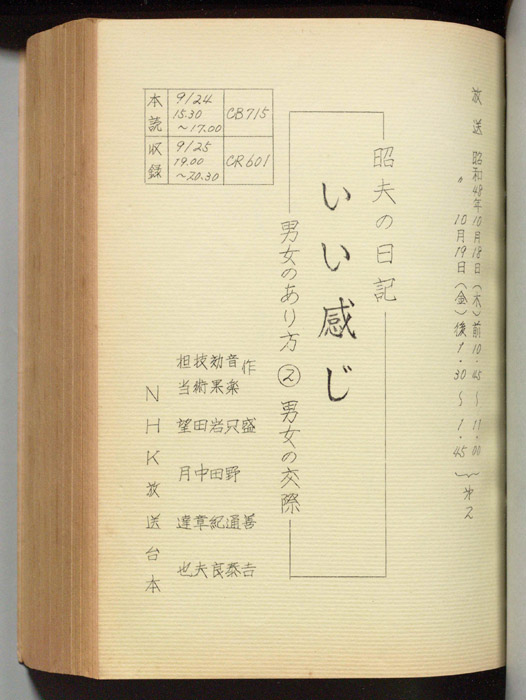 放送 昭和48年10月18日(木)前10・45〜11・00
〃 10月19日(金)後1・30〜1・45
第2
昭夫の日記
いい感じ
男女のあり方 ② 男女の交際
作 盛善吉
音楽 只野通泰
効果 岩田紀良
技術 田中章夫
担当 望月達也
NHK放送台本
本読 9/24 15.30〜17.00 CB715
収録 9/25 19.00〜20.30 CR601